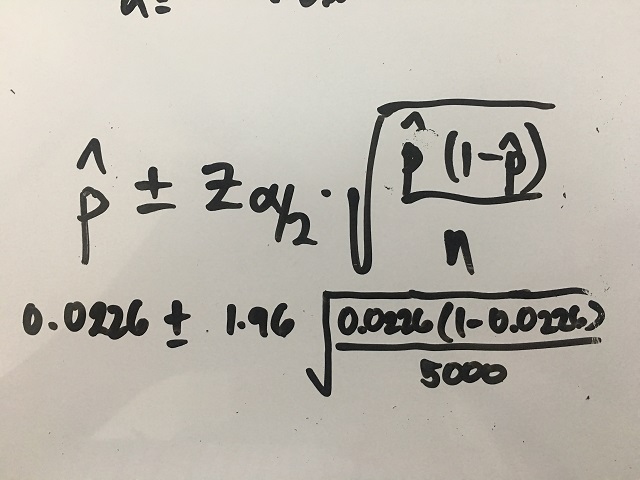 p̂ ± Zα/2 · √(p̂ (1-p̂) / n)
0.0226 ± 1.96 √(0.0226 (1-0.0226) / 5000)